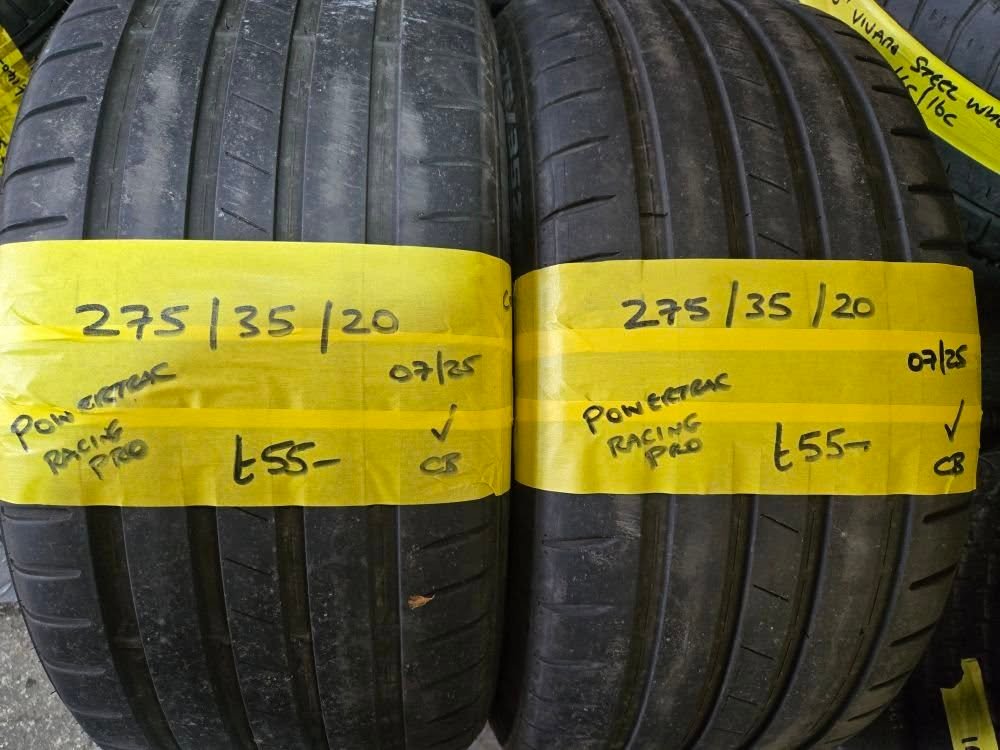 275/35/20
07/25
POWERTRAC
RACING
PRO
£55-
✓
CB
275/35/20
07/25
POWERTRAC
RACING
PRO
£55-
✓
CB
VIVARO
STEEL
/16C